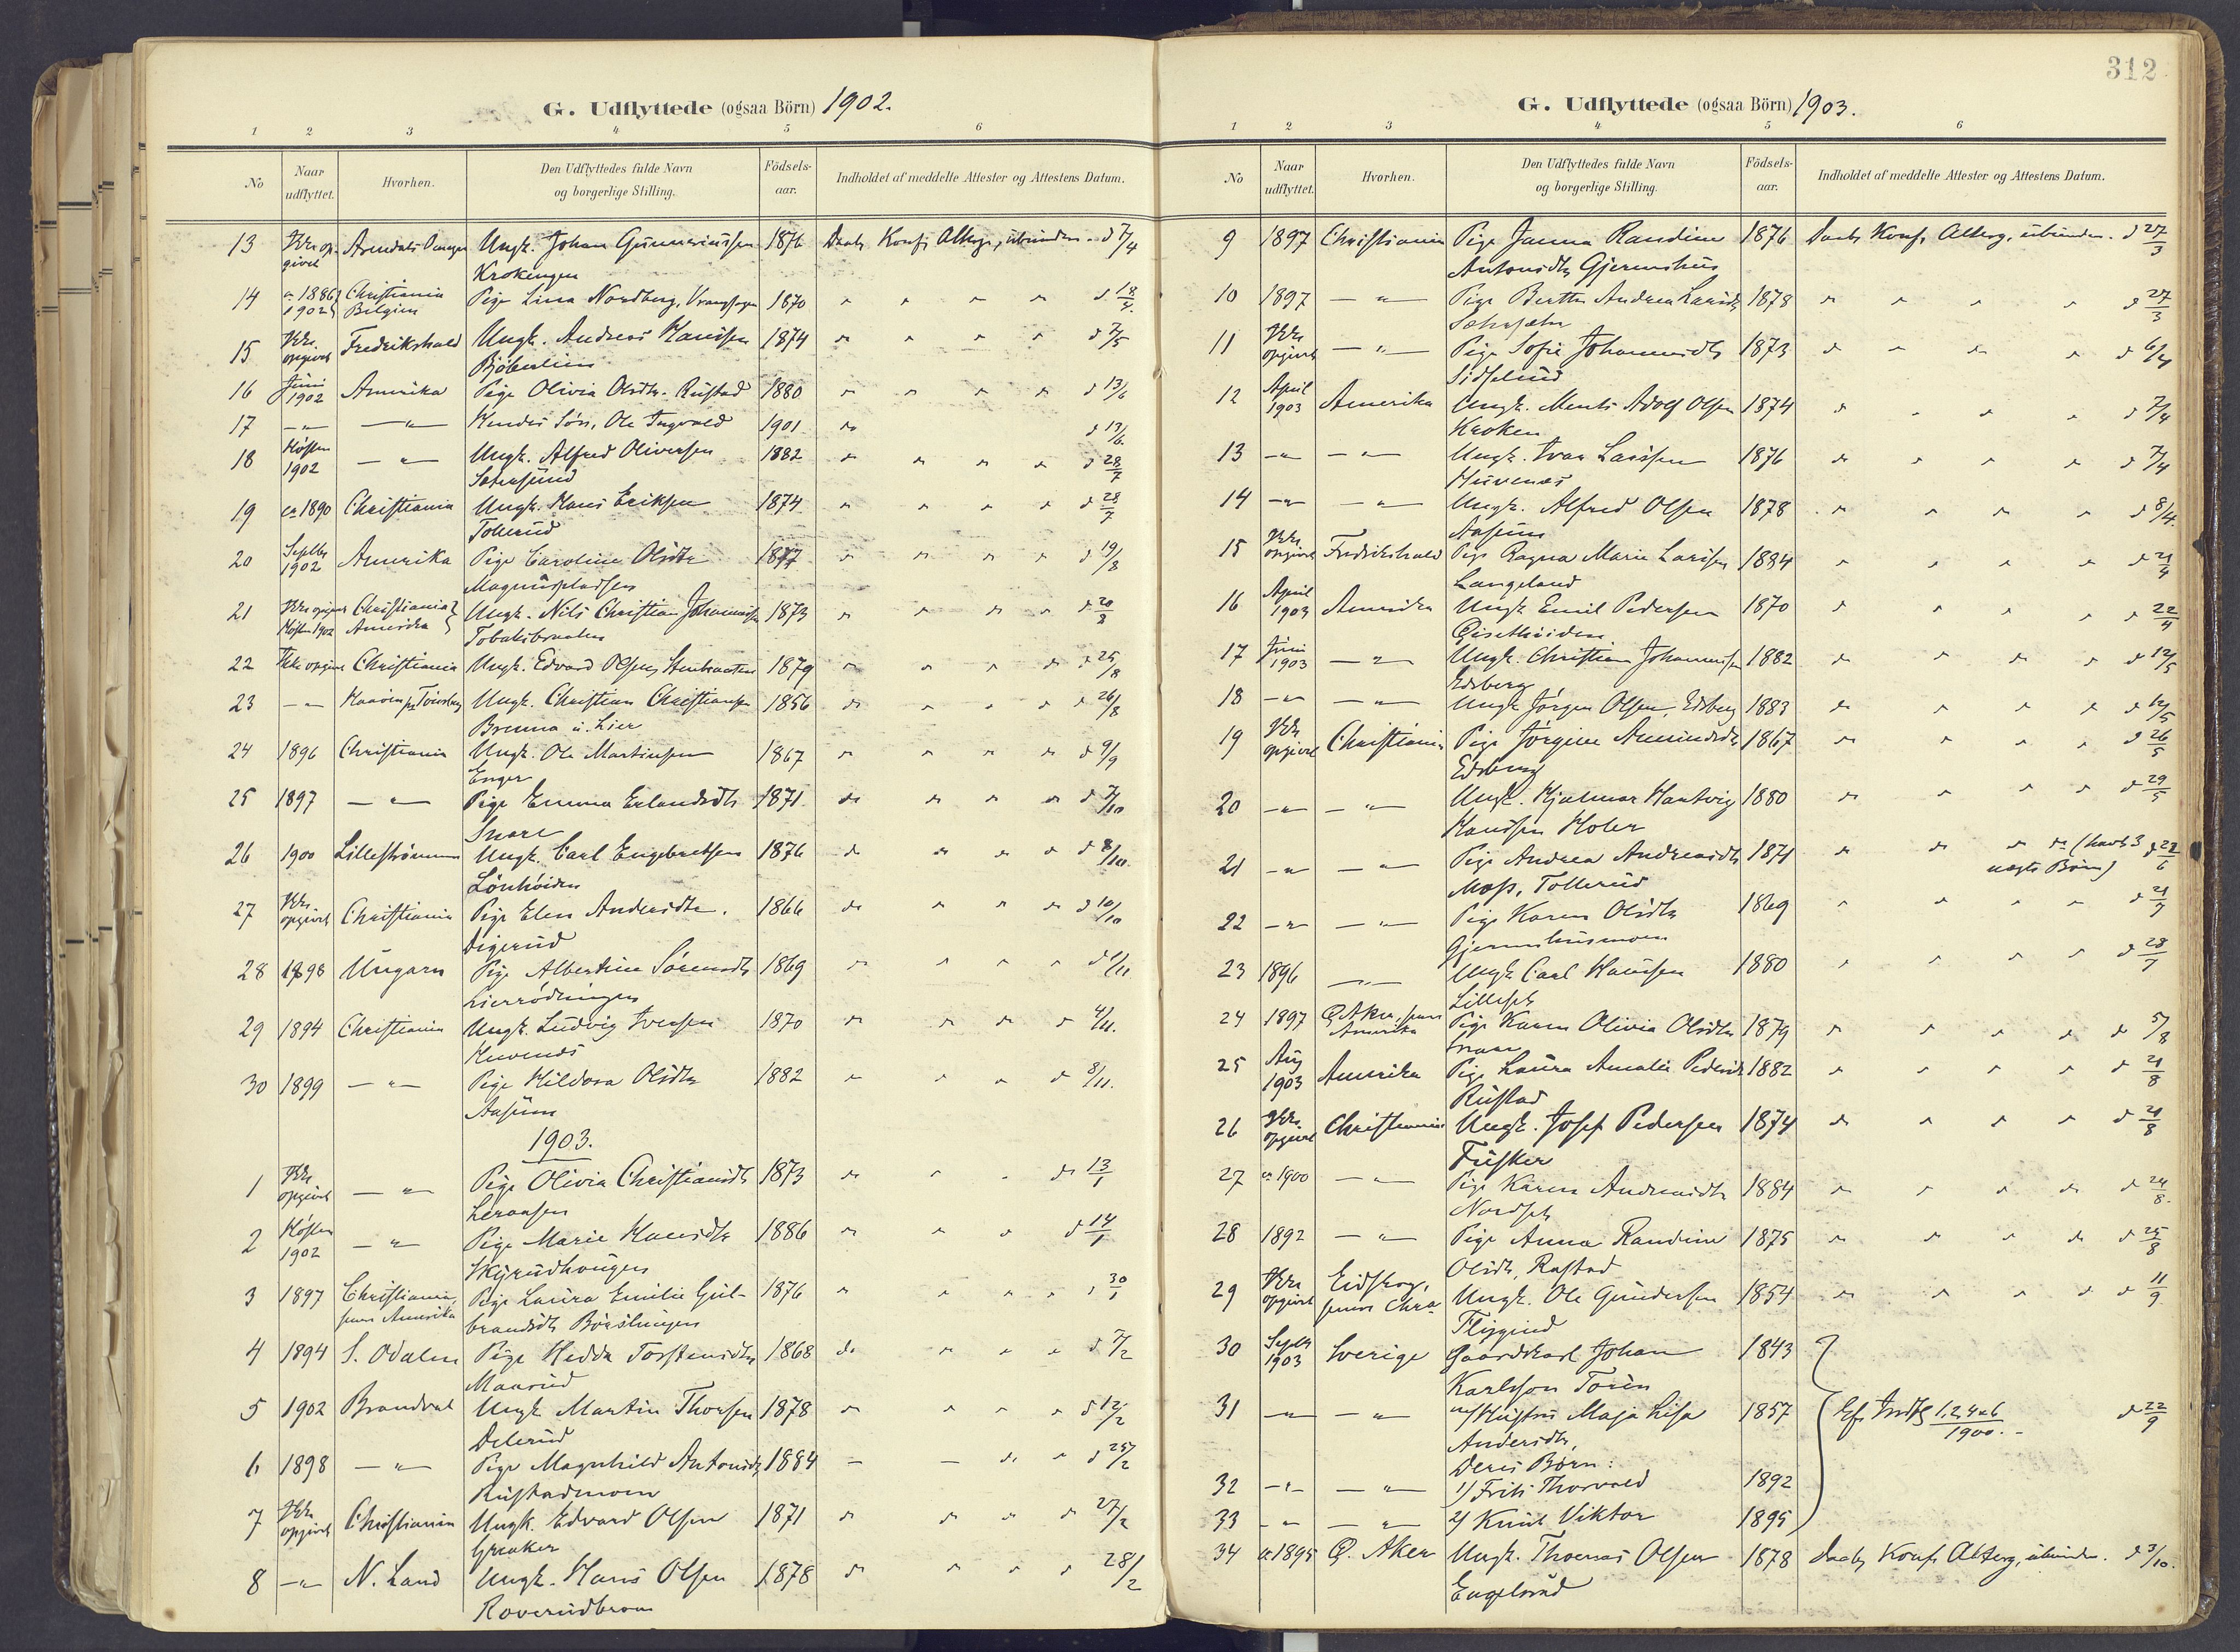 G. Udflyttede (ogsaa Börn) 1902.
1 2 3 4 5 6
No Naar udflyttet. Hvorhen. Den Udflyttedes fulde Navn og borgerlige Stilling. Födsels-aar. Indholdet af meddelte Attester og Attestens Datum.
13 Ikke opgivet Ungk. Johan Gunnerinssen 1876 Daab, Konf. d 7/4
Krokengen
14 ca 1886 1902 Christiania Belgien Pige Lina Nordberg, 1870 d 18/4
15 Ikke opgivet Fredrikshald Ungk. Andreas Hanssen 1874 d 7/5
16 Juni 1902 Amerika Pige Olivia Olsdtr. Rustad 1880 d 13/6
17 -"- -"- Hendes Sön, Ole Ingvald 1901 d 13/6
18 Hösten 1902 -"- Ungk. Alfred Oliversen 1882 d 28/7
19 ca 1890 Christiania Ungk. Hans Eriksen 1874 d 28/7
Tollerud
20 Septbr 1902 Amerika Pige Caroline Olsdtr 1877 d 19/8
Magnuspladsen
21 Ikke opgivet Hösten 1902 Christiania Amerika Ungk. Nils Christian Johannessen 1873 d 20/8
Tobaksbraaten
22 Ikke opgivet Christiania Ungk. Edvard Olsen, Stenbraaten 1879 d 25/8
23 -"- Ungk. Christian Christiansen 1856 d 26/8
Brenna i Lier
24 1896 Christiania Ungk. Ole Martinsen 1867 d 9/9
Enger
25 1897 -"- Pige Emma Erlandsdtr 1871 d 7/10
Snare
26 1900 Lilleströmmen Ungk. Carl Engebretsen 1876 d 8/10
Lönhöiden
27 Ikke opgivet Christiania Pige Elen Andersdtr. 1866 d 10/10
Digerud
28 1898 Ungarn Pige Albertine Sörensdtr 1869 d 1/11
29 1894 Christiania Ungk. Ludvig Iversen 1870 4/11.
Huvenes
30 1899 -"- Pige Hildora Olsdtr 1882 8/11.
Aasum
1903.
1 Ikke opgivet -"- Pige Olivia Christiansdtr 1873 13/1
2 Hösten 1902 -"- Pige Marie Hansdtr 1886 d 14/1
Skyrudhaugen
3 1897 Christiania, senere Amerika Pige Laura Emilie Gul- 1876 30/1
brandsdtr Börslungen
4 1894 S. Odalen Pige Hedda Torstensdtr 1868 d 7/2
Maarud
5 1902 Brandval Ungk Martin Thorsen 1878 d 12/2
Delerud
6 1898 -"- Pige Magnhild Antonsdtr 1884 d 25/2
Rustadmoen
7 Ikke opgivet Christiania Ungk. Edvard Olsen 1871 27/2
Graaker
8 -"- N. Land Ungk. Hans Olsen 1878 28/2
312
G. Udflyttede (ogsaa Börn) 1903.
1 2 3 4 5 6
No Naar udflyttet. Hvorhen. Den Udflyttedes fulde Navn og borgerlige Stilling. Födsels-aar. Indholdet af meddelte Attester og Attestens Datum.
9 1897 Christiania Pige Janna Randine 1876 Daab, Konf. d 27/3
Antonsdtr Gjermshus
10 1897 -"- Pige Berthe Andrea Larsdtr 1878 d 27/3
11 Ikke opgivet -"- Pige Sofie Johannesdtr 1873 d 6/4
Sidselrud
12 April 1903 Amerika Ungk. Ments Adolf Olsen 1874 d 7/4
Kroken
13 -"- -"- Ungk. Ivar Larssen 1876 d 7/4
Huvenes
14 -"- -"- Ungk. Alfred Olsen 1878 d 8/4
Aasum
15 Ikke opgivet Fredrikshald Pige Ragna Marie Larssen 1884 d 21/4
Langeland
16 April 1903 Amerika Ungk Emil Pedersen 1870 d 22/4
17 Juni 1903 -"- Ungk. Christian Johannessen 1882 d 12/5
Edsberg
18 -"- -"- Ungk Jörgen Olsen, Edsberg 1883 d 12/5
19 Ikke opgivet Christiania Pige Jörgine Amundsdtr 1867 d 26/5
Edsberg
20 -"- -"- Ungk. Hjalmar Hartvig 1880 d 29/5
Hanssen Holer
21 -"- -"- Pige Andrea Andreasdtr 1871 (havt 3 uægte Börn) d 22/6
Moss, Tollerud
22 -"- -"- Pige Karen Olsdtr 1869 d 21/7
Gjermshusmoen
23 1896 -"- Ungk Carl Hanssen 1880 d 28/7
Lilleset
24 1897 Ø. Aker, senere Amerika Pige Karen Olivia Olsdtr 1879 5/8
Snare
25 Aug 1903 Amerika Pige Laura Amalie Pedersdtr 1882 d 21/8
Rustad
26 Ikke opgivet Christiania Ungk. Josef Pedersen 1874 d 21/8
Fusker
27 ca 1900 -"- Pige Karen Andreasdtr 1884 d 24/8.
Nordset
28 1892 -"- Pige Anna Randine 1875 d 25/8
Olsdtr, Rastad
29 Ikke opgivet Eidskog, senere Chra Ungk. Ole Gundersen 1854 d 11/9
30 Septbr 1903 Sverige Gaardskarl Johan 1843
Karlsson Torèn
31 -"- -"- m/Hustru Maja Lisa 1857 d 22/9
Andersdtr,
Deres Börn:
32 -"- -"- 1) Frits Thorvald 1892
33 -"- -"- 2) Knut Viktor 1895
34 ca 1895 Ø. Aker Ungk. Thomas Olsen 1878 Daab, Konf. d 3/10.
Engelsrud